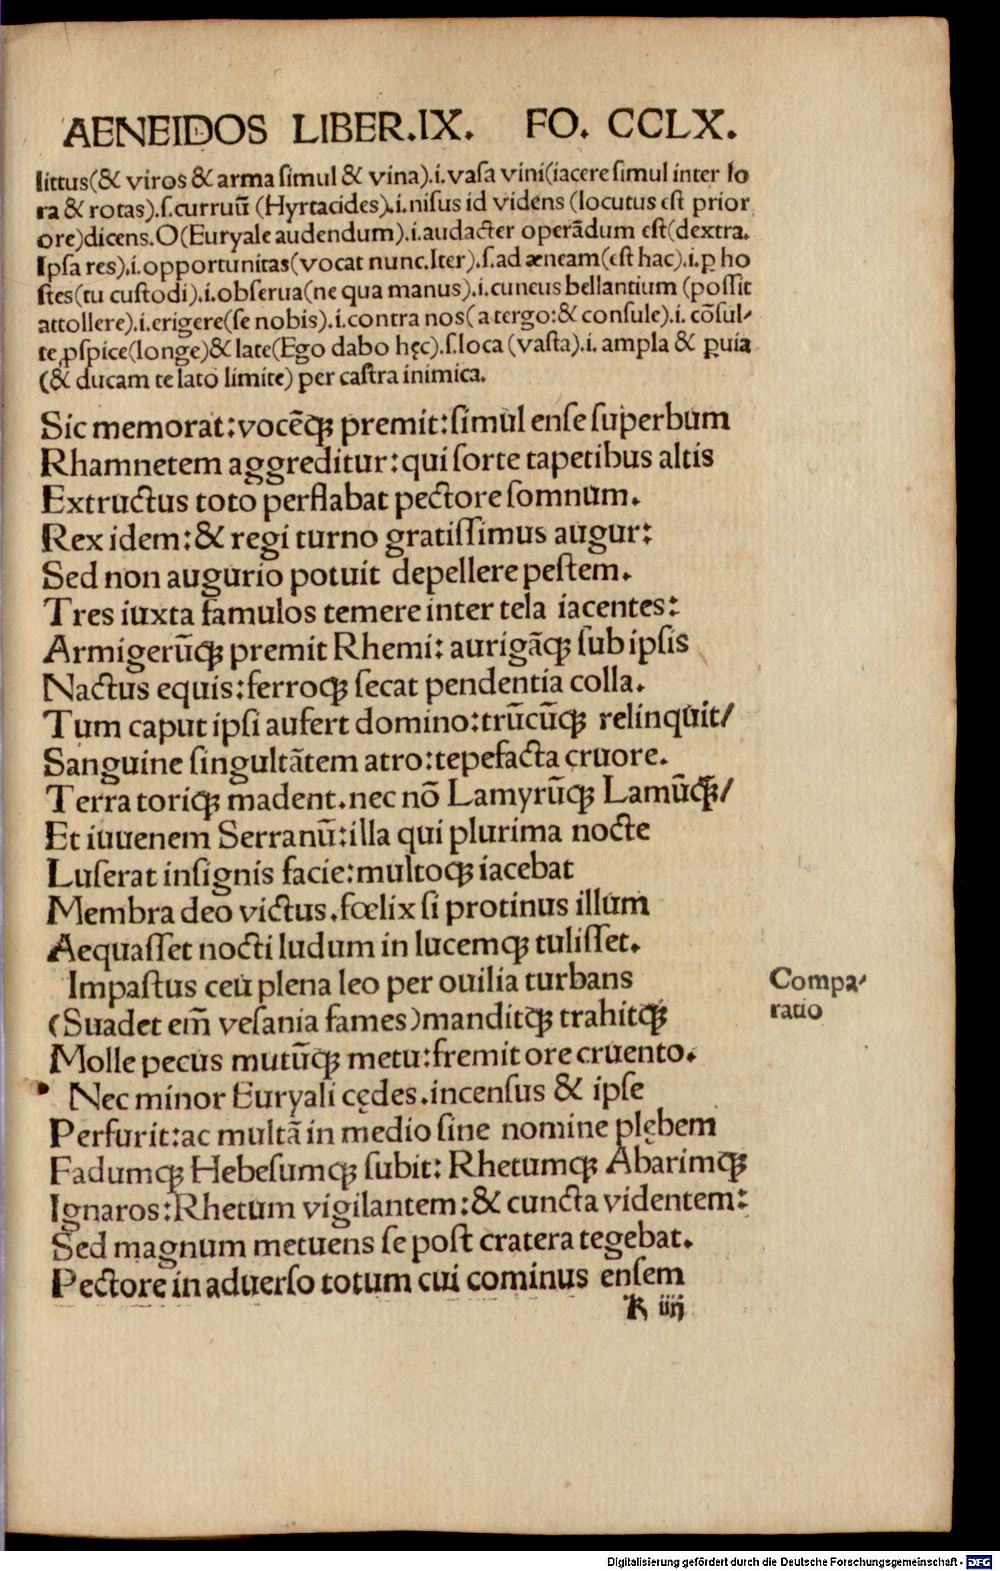 AENEIDOS LIBER.IX. FO. CCLX.
littus(& viros & arma simul & vina).i.vasa vini(iacere simul inter lo
ra & rotas).s.curruū (Hyrtacides).i.nisus id videns (locutus est prior
ore)dicens.O(Euryale audendum).i.audacter operādum est(dextra.
Ipsa res).i.opportunitas(vocat nunc.Iter).s.ad æneam(est hac).i.ꝑ ho
stes(tu custodi).i.obserua(ne qua manus).i.cuneus bellantium (possit
attollere).i.erigere(se nobis).i.contra nos(a tergo:& consule).i. cōsul-
te ꝓspice(longe)& late(Ego dabo hęc).s.loca (vasta).i. ampla & ꝑuia
(& ducam te lato limite) per castra inimica.
Sic memorat:vocēqꝫ premit:simul ense superbum
Rhamnetem aggreditur:qui forte tapetibus altis
Extructus toto perflabat pectore somnum.
Rex idem:& regi turno gratissimus augur:
Sed non augurio potuit depellere pestem.
Tres iuxta famulos temere inter tela iacentes:
Armigerūqꝫ premit Rhemi: aurigāqꝫ sub ipsis
Nactus equis:ferroqꝫ secat pendentia colla.
Tum caput ipsi aufert domino:trūcūqꝫ relinquit/
Sanguine singultātem atro:tepefacta cruore.
Terra toriqꝫ madent.nec nō Lamyrūqꝫ Lamūqꝫ/
Et iuuenem Serranū:illa qui plurima nocte
Luserat insignis facie:multoqꝫ iacebat
Membra deo victus.fœlix si protinus illum
Aequasset nocti ludum in lucemqꝫ tulisset.
Impastus ceu plena leo per ouilia turbans
(Suadet em̄ vesania fames)manditqꝫ trahitqꝫ
Molle pecus mutūqꝫ metu:fremit ore cruento.
Nec minor Euryali cędes.incensus & ipse
Perfurit:ac multā in medio sine nomine plębem
Fadumqꝫ Hebesumqꝫ subit: Rhetumqꝫ Abarimqꝫ
Ignaros:Rhetum vigilantem:& cuncta videntem:
Sed magnum metuens se post cratera tegebat.
Pectore in aduerso totum cui cominus ensem
K iiij
Compa-
ratio
Digitalisierung gefördert durch die Deutsche Forschungsgemeinschaft - DFG